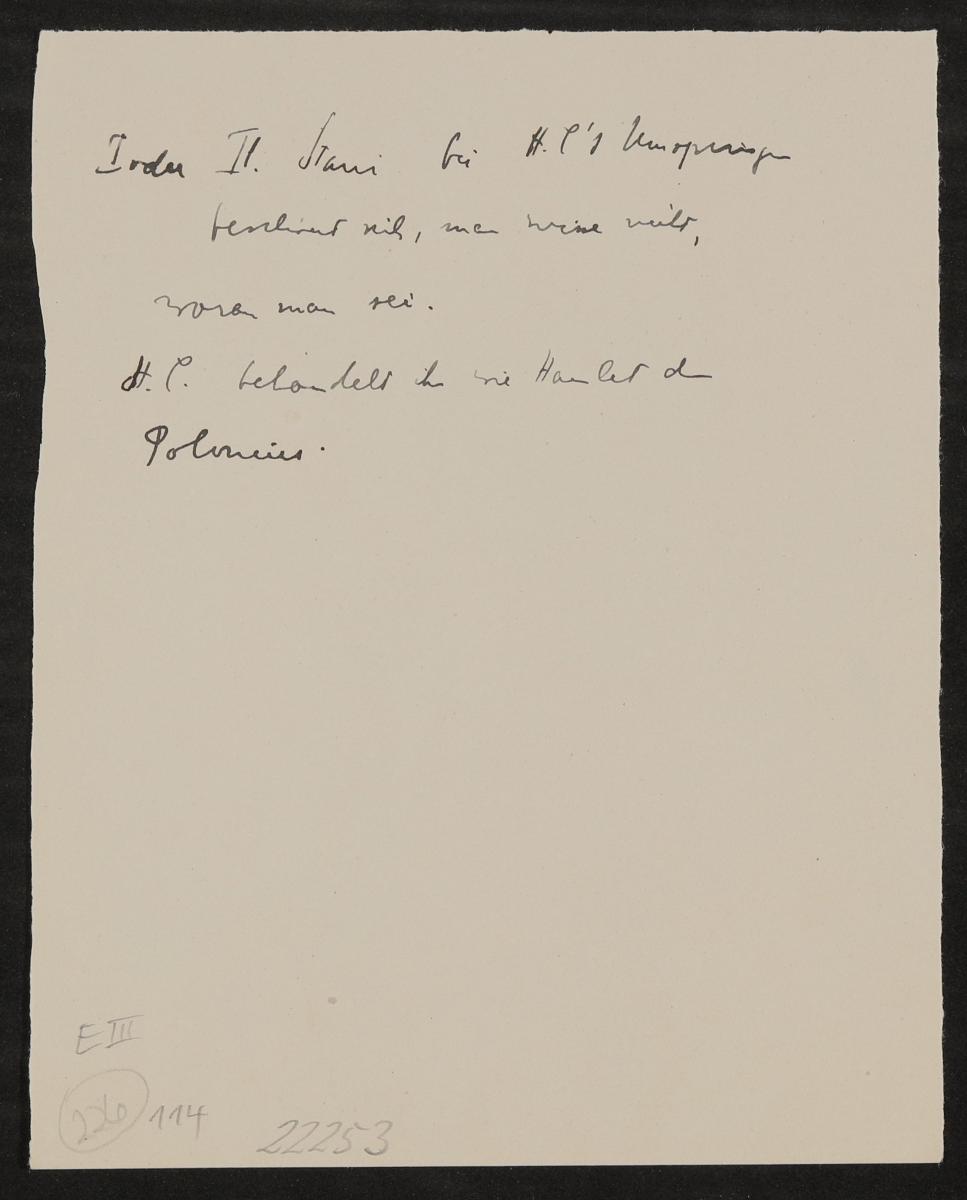 I oder II. Stani bei H. C's Umspringen
beschwert sich, man wisse nicht,
woran man sei.
H. C. behandelt ihn wie Hamlet den
Polonius.
E III
226 114 22253